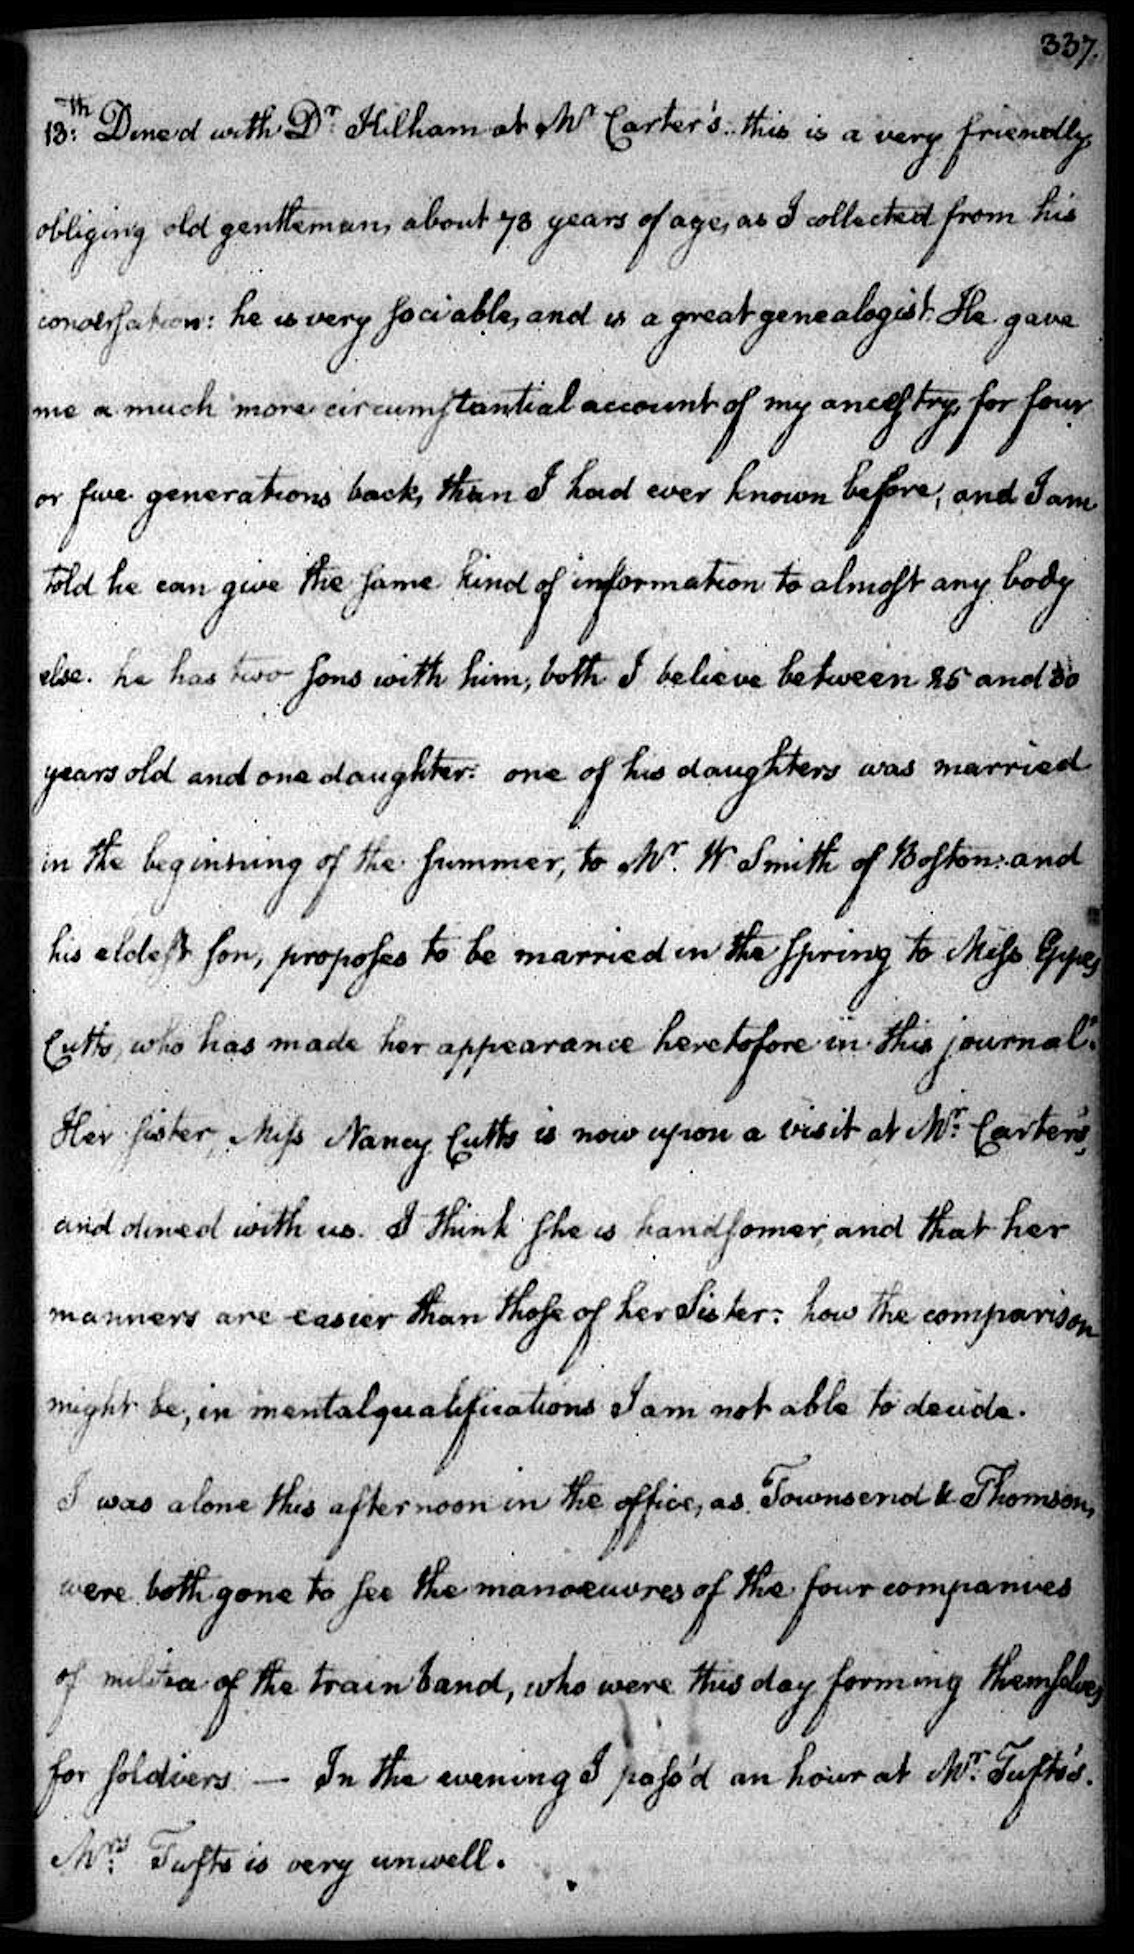 337.
13:th Dined with Dr. Kilham at Mr Carter's. this is a very friendly,
obliging old gentleman, about 73 years of age, as I collected from his
conversation: he is very sociable, and is a great genealogist. He gave
me a much more circumstantial account of my ancestry, for four
or five generations back, than I had ever known before, and I am
told he can give the same kind of information to almost any body
else. he has two sons with him, both I believe between 25 and 30
years old and one daughter: one of his daughters was married
in the beginning of the summer, to Mr. W Smith of Boston: and
his eldest son, proposes to be married in the spring to Miss Eppes
Cutts, who has made her appearance heretofore in this journal.
Her sister, Miss Nancy Cutts is now upon a visit at Mr. Carter's,
and dined with us. I think she is handsomer, and that her
manners are easier than those of her Sister: how the comparison
might be, in mental qualifications I am not able to decide.
I was alone this afternoon in the office, as Townsend & Thomson,
were both gone to see the manoeuvres of the four companies
of militia of the train band, who were this day forming themselves
for soldiers — In the evening I pass'd an hour at Mr. Tufts's.
Mrs: Tufts is very unwell.